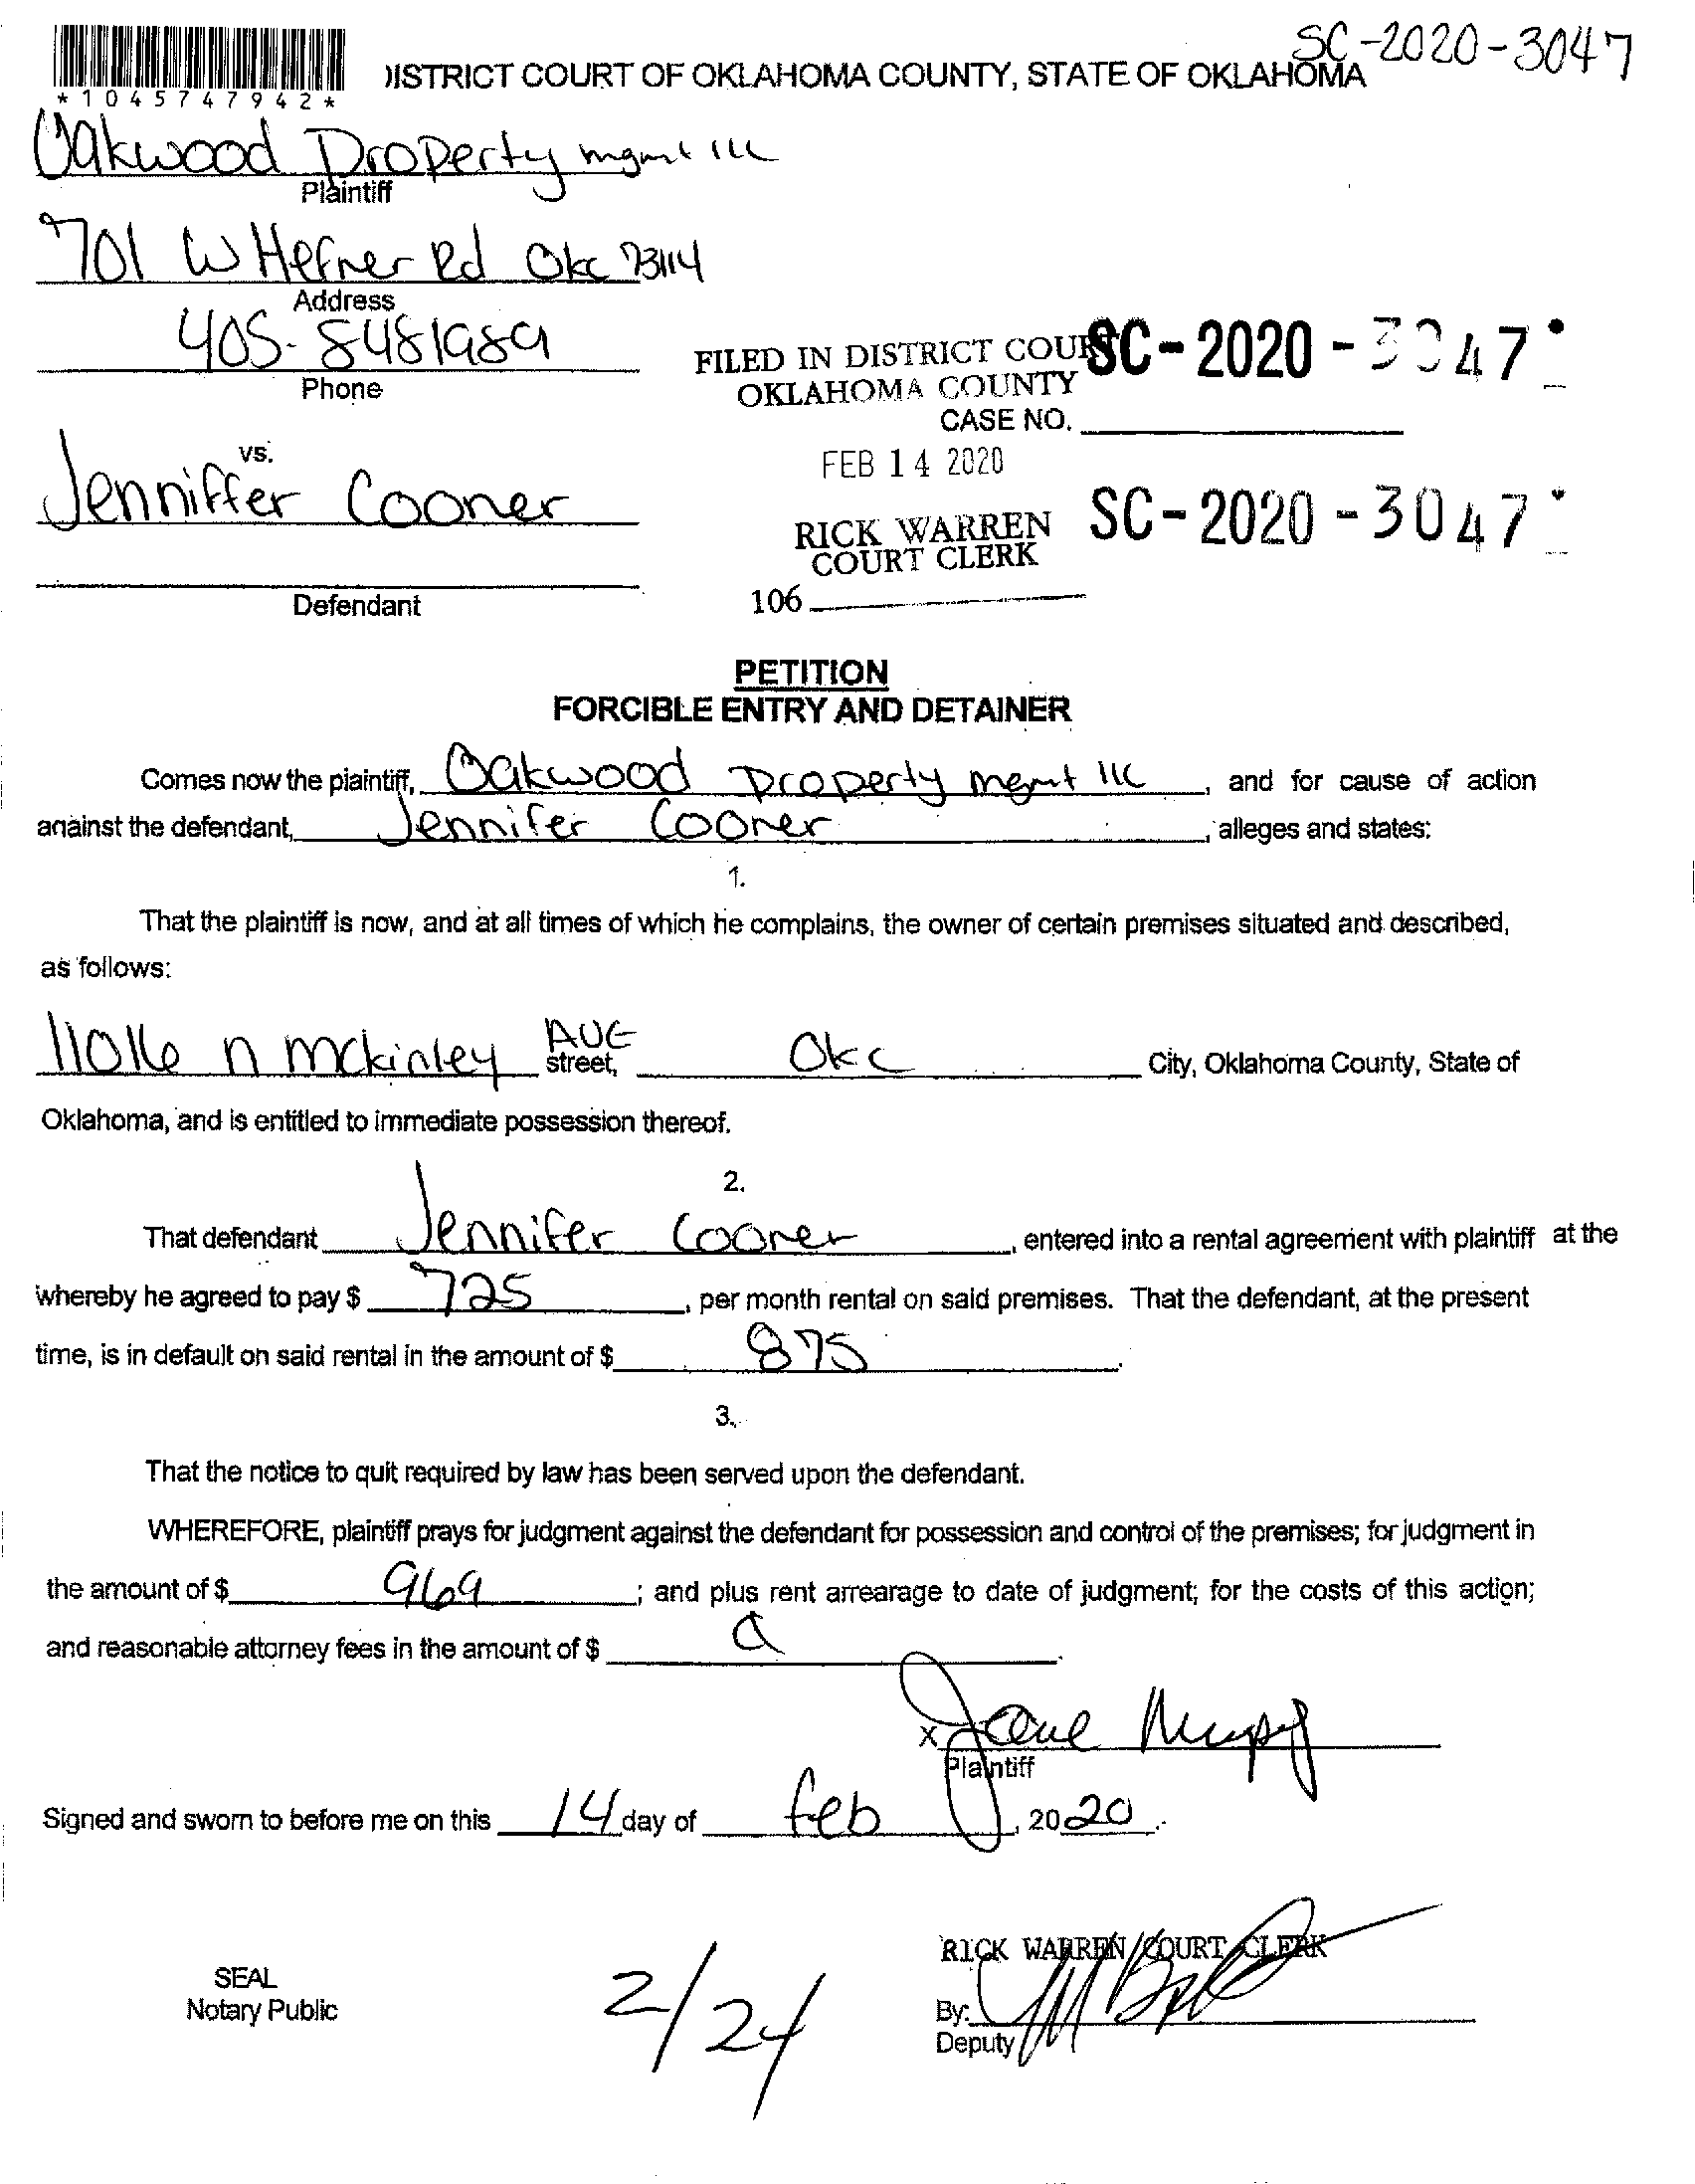 SC-2020-3047
*1045747942*
DISTRICT COURT OF OKLAHOMA COUNTY, STATE OF OKLAHOMA
Oakwood Property mgmt llc
Plaintiff
701 W Hefner Rd Okc 73114
Address
405-8481989
Phone
FILED IN DISTRICT COURT
OKLAHOMA COUNTY
SC-2020-3047
CASE NO.
vs.
FEB 14 2020
Jenniffer Cooner
RICK WARREN
COURT CLERK
SC-2020-3047
Defendant
106
PETITION
FORCIBLE ENTRY AND DETAINER
Comes now the plaintiff, Oakwood Property mgmt llc, and for cause of action
against the defendant, Jennifer Cooner, alleges and states:
1.
That the plaintiff is now, and at all times of which he complains, the owner of certain premises situated and described,
as follows:
11016 n mckinley AVE street, Okc City, Oklahoma County, State of
Oklahoma, and is entitled to immediate possession thereof.
2.
That defendant Jennifer Cooner, entered into a rental agreement with plaintiff at the
whereby he agreed to pay $ 725, per month rental on said premises. That the defendant, at the present
time, is in default on said rental in the amount of $ 875.
3.
That the notice to quit required by law has been served upon the defendant.
WHEREFORE, plaintiff prays for judgment against the defendant for possession and control of the premises; for judgment in
the amount of $ 969; and plus rent arrearage to date of judgment; for the costs of this action;
and reasonable attorney fees in the amount of $
X
Plaintiff
Signed and sworn to before me on this 14 day of feb, 2020.
RICK WARREN COURT CLERK
SEAL
Notary Public
2/24
By:
Deputy